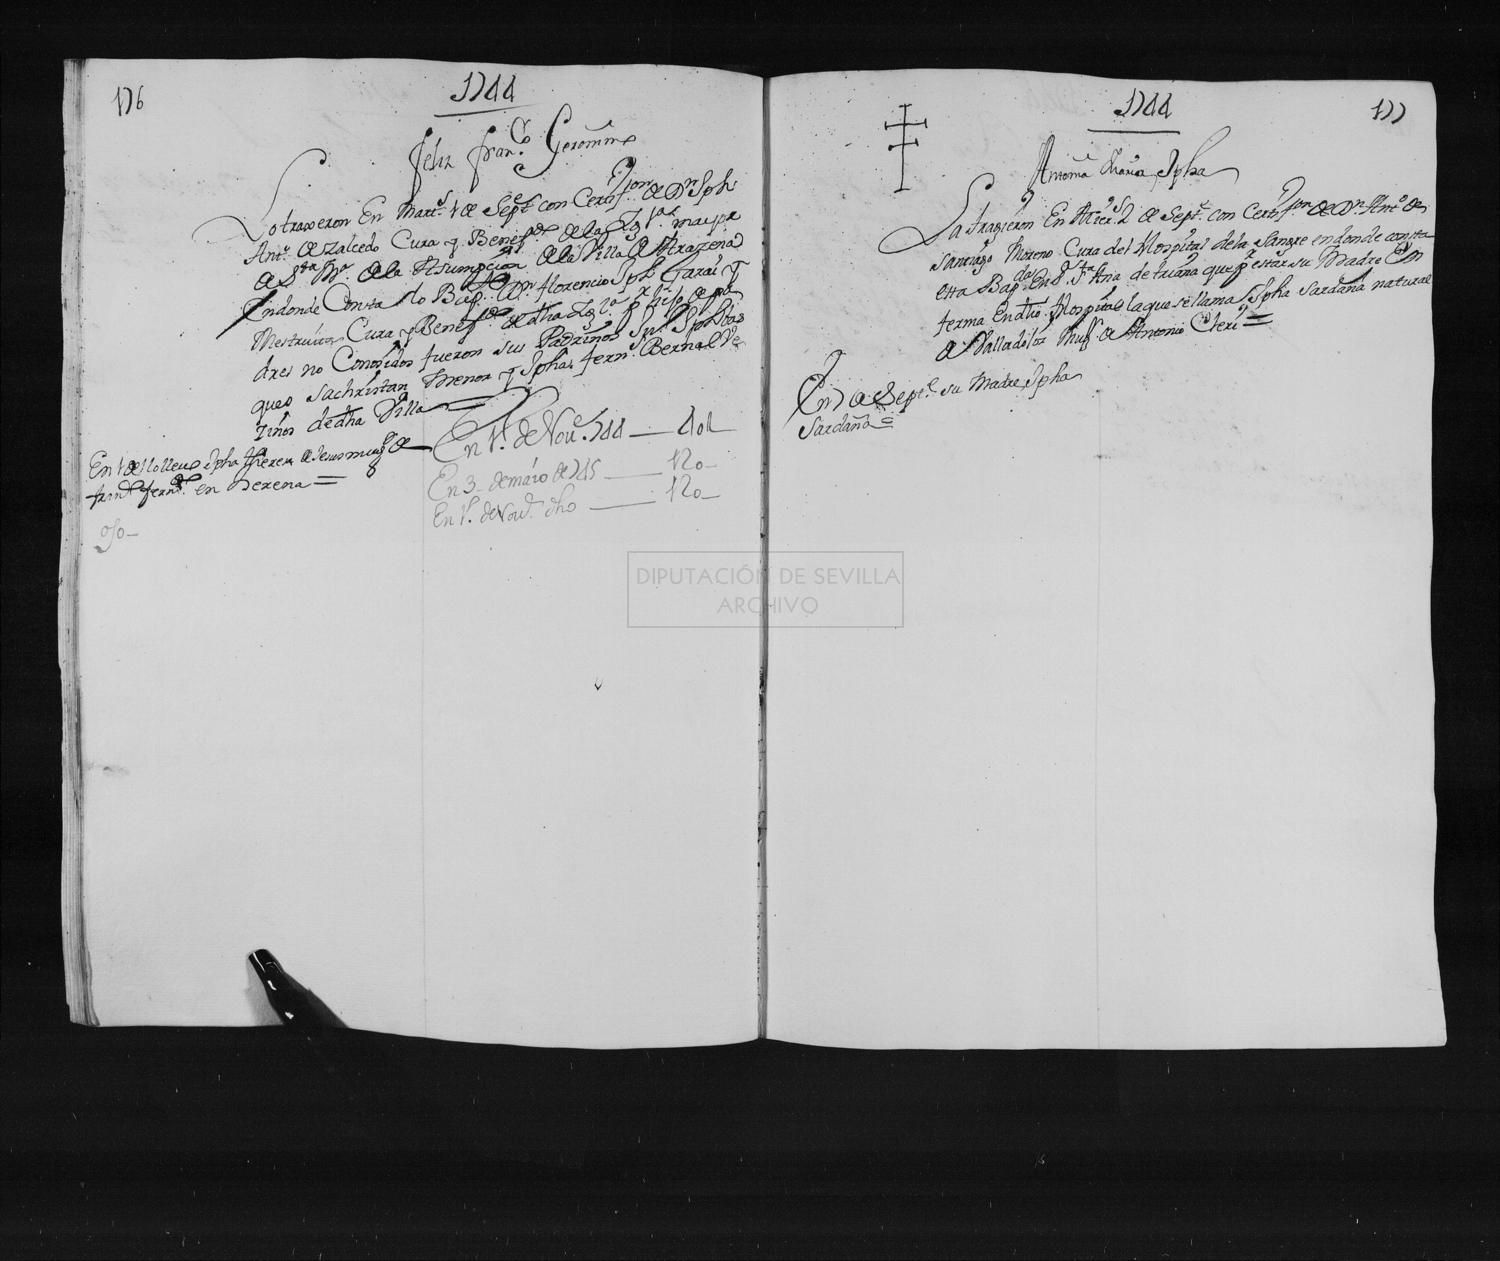 176
1744
Feliz Fran.co Geronimo
Lo traxeron En Mart.s 1 de Sept.e con Certif.on de D.n Jph
Ant.o de Zalcedo Cura y Benef.do de la Ygl.a maior
de S.ta M.a de la Asumpcion de la Villa de Arazena
Endonde Consta lo Bap.o D.n florencio Jph Garai y
Cura y Benef.do de dha Ygl.a p.r hijo de pa
dres no Conosidos fueron sus Padrinos Ju.o Jph
queo Sachristan Menor y Jpha fern.s Bernal Ve
zinos de dha Villa
En 1 de Jpha Theresa de Jesus mug.r de
fran.co fern.s en Gerena
En 1.o de Nov.e 744 — 404
En 3 de maio de 745 — 120
En 1.o de Nov.e dho — 120
1744
177
Antonia Maria Jpha
La tragieron En Mier.s 2 de Sept.e con Certif.on de D.n Ant.o de
Santiago Moreno Cura del Hospital de la Sangre en donde consta
esta Bap.da En S.ra S.ta Ana de triana que p.r estar su Madre En
ferma En dho Hospital la que se llama Jpha Sardaña natural
de Valladolid Mug.r de Antonio
En 7 de Sept.e su Madre Jpha
Sardaña
DIPUTACIÓN DE SEVILLA
ARCHIVO